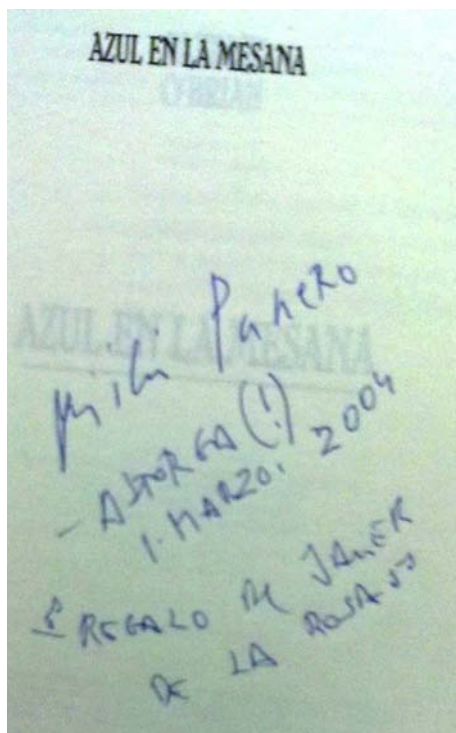 AZUL EN LA MESANA
O'BRIAN
AZUL EN LA MESANA
Michi Panero
- ASTORGA (!)
1. MARZO. 2004
REGALO DE JAVIER
DE LA ROSA